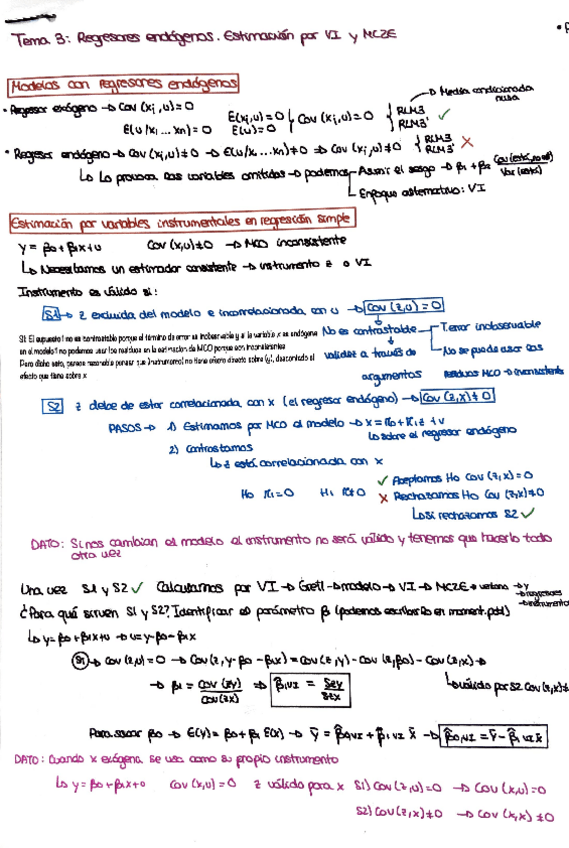 Tema 3: Regresores endógenos. Estimación por VI y MC2E
Modelos con regresores endógenos
• Regresor exógeno → Cov (xj,u)=0
E(u/x1 ... xn)=0
E(xj,u)=0
E(u)=0
Cov (xj,u)=0
RLM3
RLM3'
✓
→ Media condicionada nula
• Regresor endógeno → Cov (xj,u)≠0 → E(u/x...xn)≠0 ⇒ Cov (xj,u)≠0
RLM3
RLM3'
✗
↳ Lo provoca las variables omitidas → podemos
Asumir el sesgo → β1 + β2
Enfoque alternativo: VI
Estimación por variables instrumentales en regresión simple
y = β0 + β1x + u Cov (x,u)≠0 → MCO inconsistente
↳ Necesitamos un estimador consistente → instrumento z o VI
Instrumento es válido si:
S1 → z excluida del modelo e incorrelacionada con u → Cov (z,u) = 0
S1: El supuesto 1 no es contrastable porque el término de error es inobservable y si la variable x es endógena
en el modelo 1 no podemos usar los residuos en la estimación de MCO porque son inconsistentes
Para dicho esto, parece razonable pensar que (instrumento) no tiene efecto directo sobre (y), descontado el
efecto que tiene sobre x
No es contrastable
T.error inobservable
No se puede usar los
residuos MCO → inconsistentes
validez a través de
argumentos
S2 z debe de estar correlacionada con x (el regresor endógeno) → Cov (z,x) ≠ 0
PASOS → 1) Estimamos por MCO el modelo → x = π0 + π1z + v
↳ sobre el regresor endógeno
2) Contrastamos
↳ z está correlacionada con x
H0 π1=0 H1 π≠0
✓ Aceptamos H0 Cov (z,x)=0
✗ Rechazamos H0 Cov (z,x)≠0
↳ Si rechazamos S2 ✓
DATO: Si nos cambian el modelo el instrumento no será válido y tenemos que hacerlo todo
otra vez
Una vez S1 y S2 ✓ Calculamos por VI → Gretl → modelo → VI → MC2E → ventana → y
→ regresores
→ instrumentos
¿Para qué sirven S1 y S2? Identificar el parámetro β (podemos escribirlo en moment. pobl)
↳ y = β0 + β1x + u → u = y - β0 - β1x
S1 → Cov (z,u) = 0 → Cov (z, y - β0 - β1x) = Cov (z,y) - Cov (z,β0) - Cov (z,x) →
→ β1 = Cov (zy) / Cov (zx) ⇒ β̂1,VI = Szy / Szx
↳ válido por S2 Cov (z,x)≠
Para sacar β0 → E(y) = β0 + β1 E(x) → ȳ = β̂0,VI + β̂1,VI x̄ → β̂0,VI = ȳ - β̂1,VI x̄
DATO: Cuando x exógena se usa como su propio instrumento
↳ y = β0 + β1x + u Cov (x,u) = 0 z válido para x S1) Cov (z,u) = 0 → Cov (x,u) = 0
S2) Cov (z,x) ≠ 0 → Cov (x,x) ≠ 0